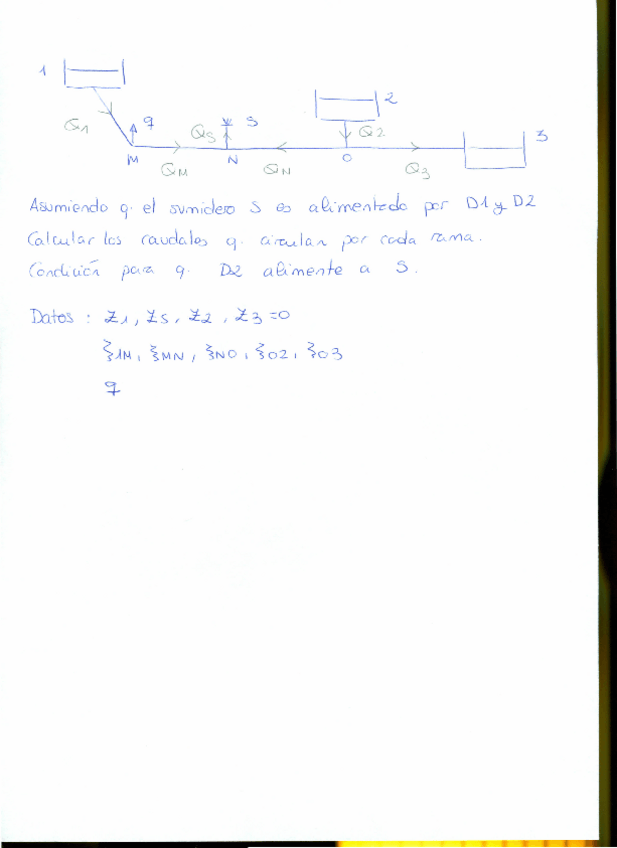 1
2
3
Q1
q
QS
S
Q2
M
QM
N
QN
O
Q3
Asumiendo q. el sumidero S es alimentado por D1 y D2
Calcular los caudales q. circulan por cada rama.
Condición para q. D2 alimente a S.
Datos : Z1, ZS, Z2, Z3=0
ξ1M, ξMN, ξNO, ξO2, ξO3
q